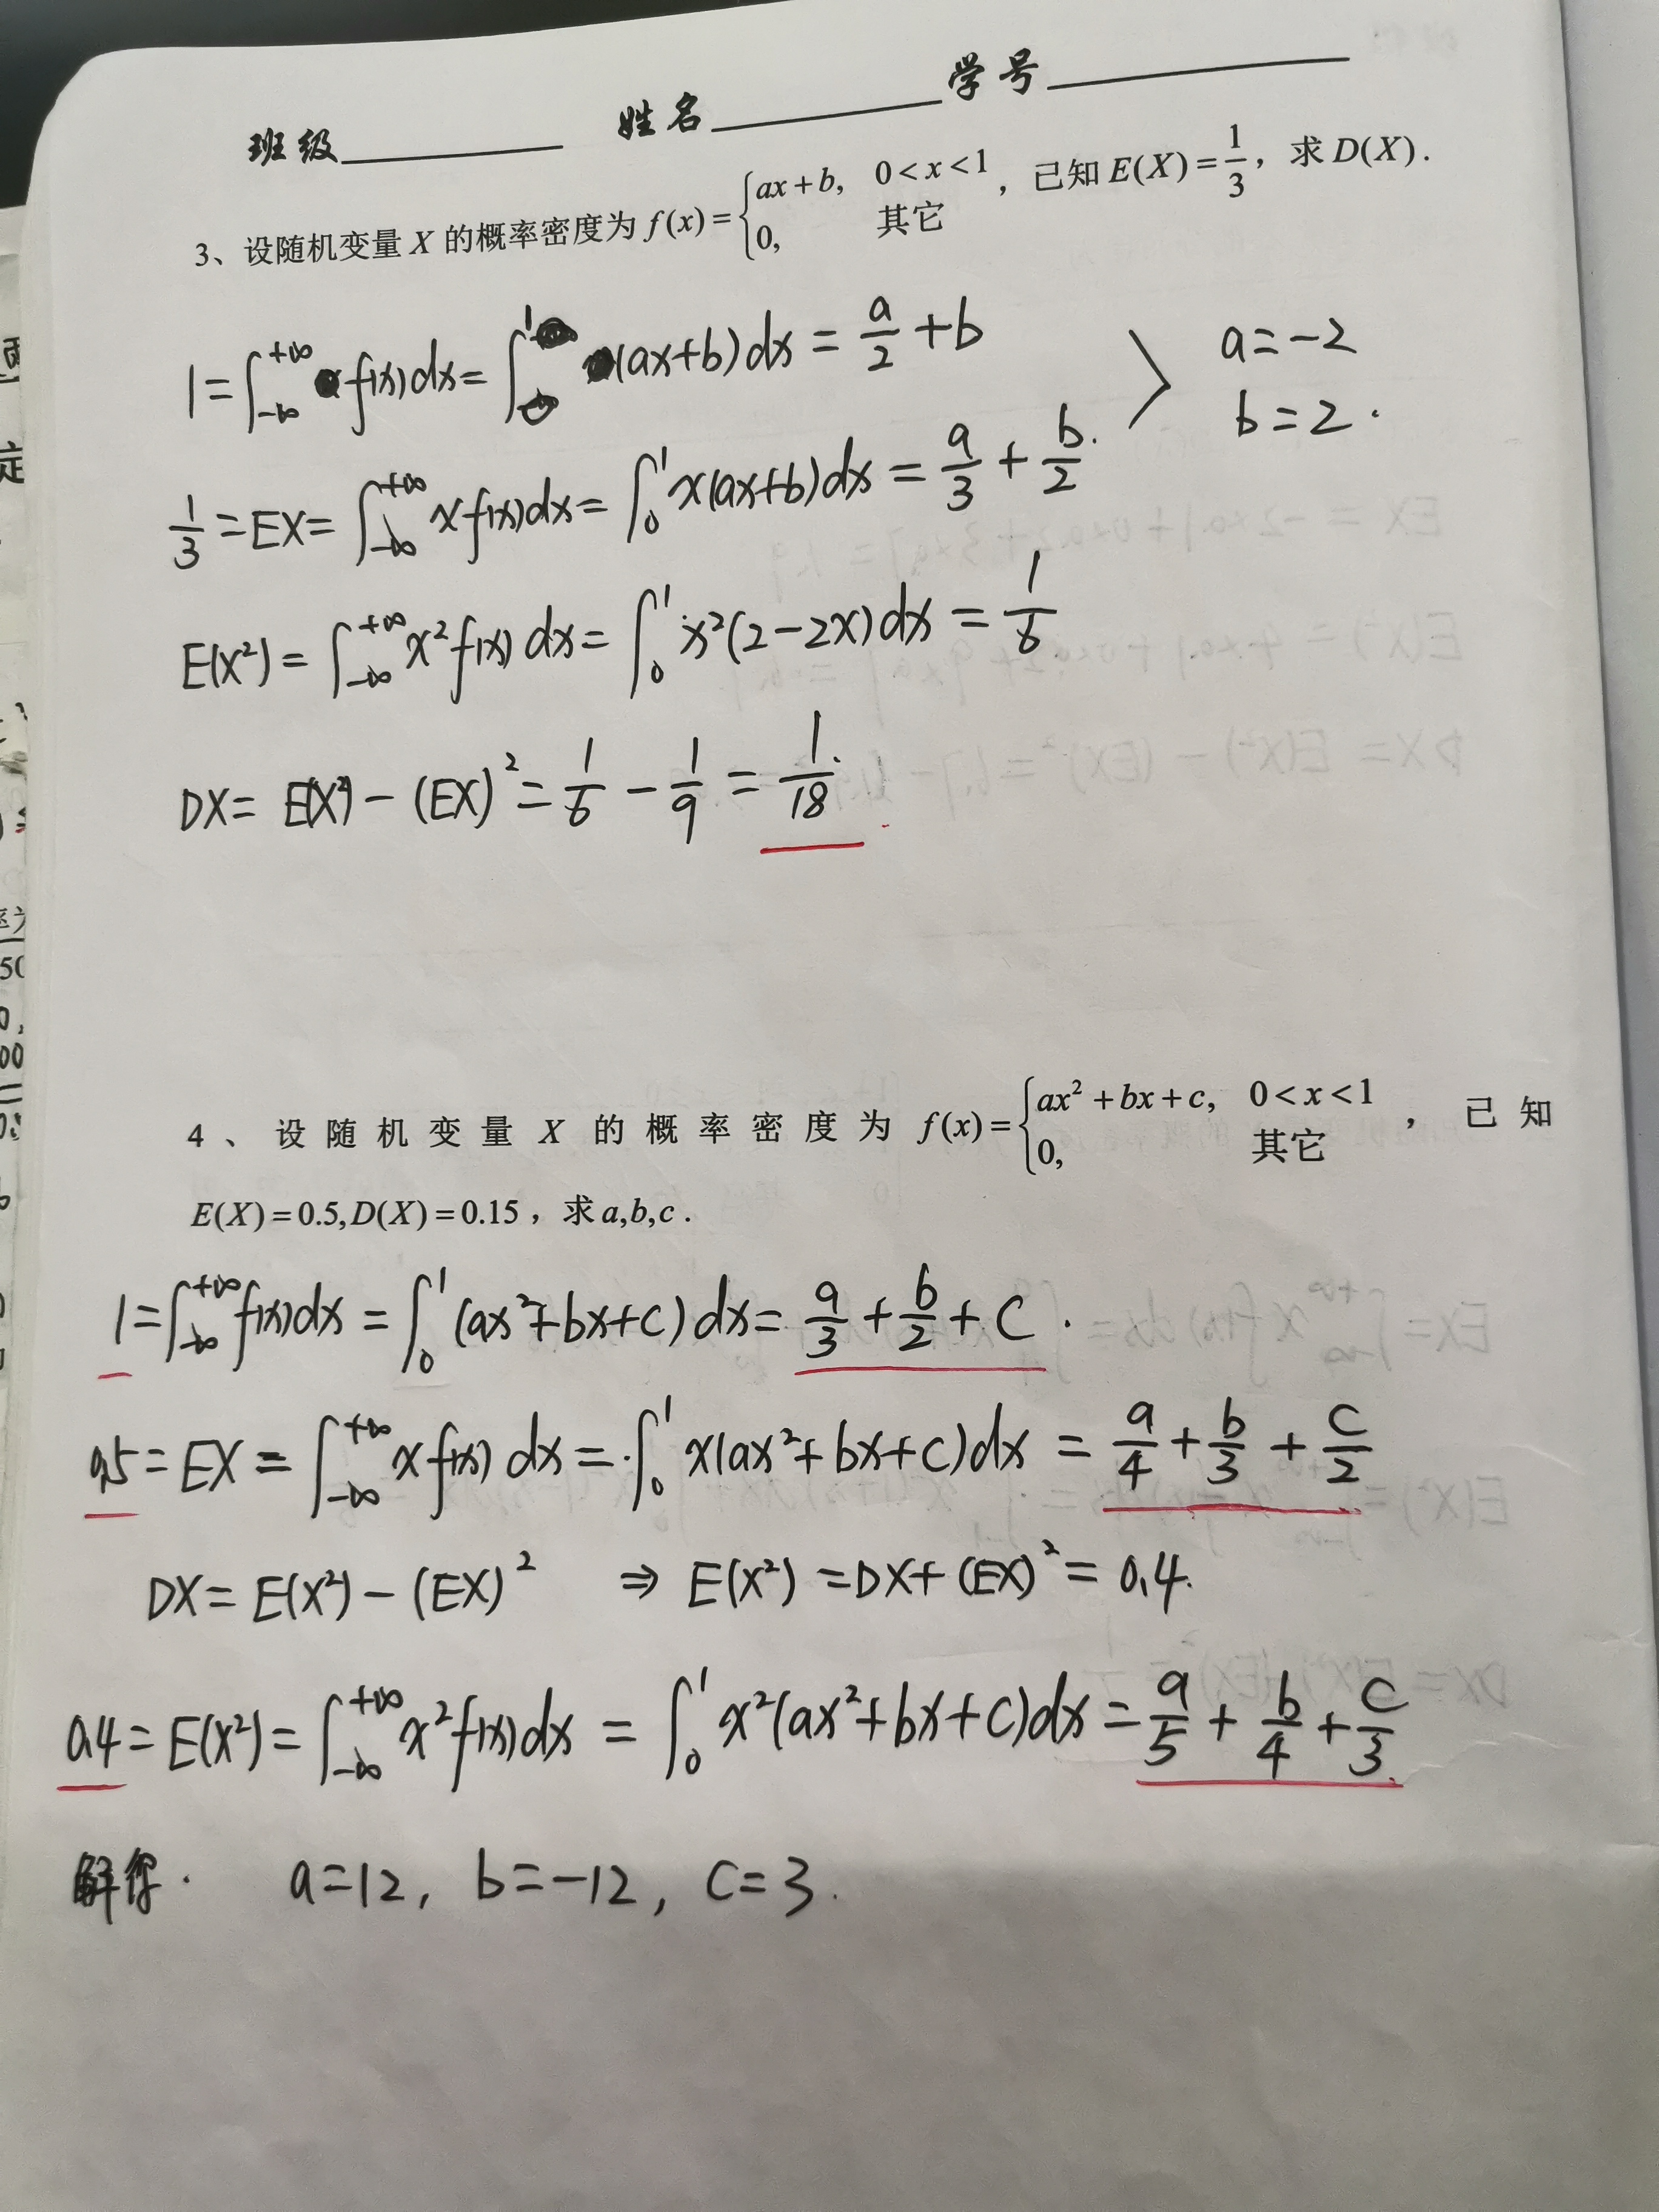 班级 姓名 学号
3、设随机变量 X 的概率密度为 f(x)={ax+b, 0<x<1
0, 其它 , 已知 E(X)=1/3, 求 D(X).
1=∫_{-∞}^{+∞} f(x)dx=∫_0^1 (ax+b)dx = a/2 + b > a=-2
b=2.
1/3=EX=∫_{-∞}^{+∞} xf(x)dx=∫_0^1 x(ax+b)dx = a/3 + b/2.
E(X²)=∫_{-∞}^{+∞} x²f(x)dx=∫_0^1 x²(2-2x)dx = 1/6
DX= E(X²)-(EX)²= 1/6 - 1/9 = 1/18.
4、设随机变量 X 的概率密度为 f(x)={ax²+bx+c, 0<x<1
0, 其它 , 已知
E(X)=0.5,D(X)=0.15, 求a,b,c.
1=∫_{-∞}^{+∞} f(x)dx = ∫_0^1 (ax²+bx+c)dx= a/3 + b/2 + c.
0.5=EX=∫_{-∞}^{+∞} xf(x)dx=∫_0^1 x(ax²+bx+c)dx = a/4 + b/3 + c/2
DX=E(X²)-(EX)² ⇒ E(X²)=DX+(EX)²=0.4.
0.4=E(X²)=∫_{-∞}^{+∞} x²f(x)dx = ∫_0^1 x²(ax²+bx+c)dx= a/5 + b/4 + c/3.
解得. a=12, b=-12, c=3.